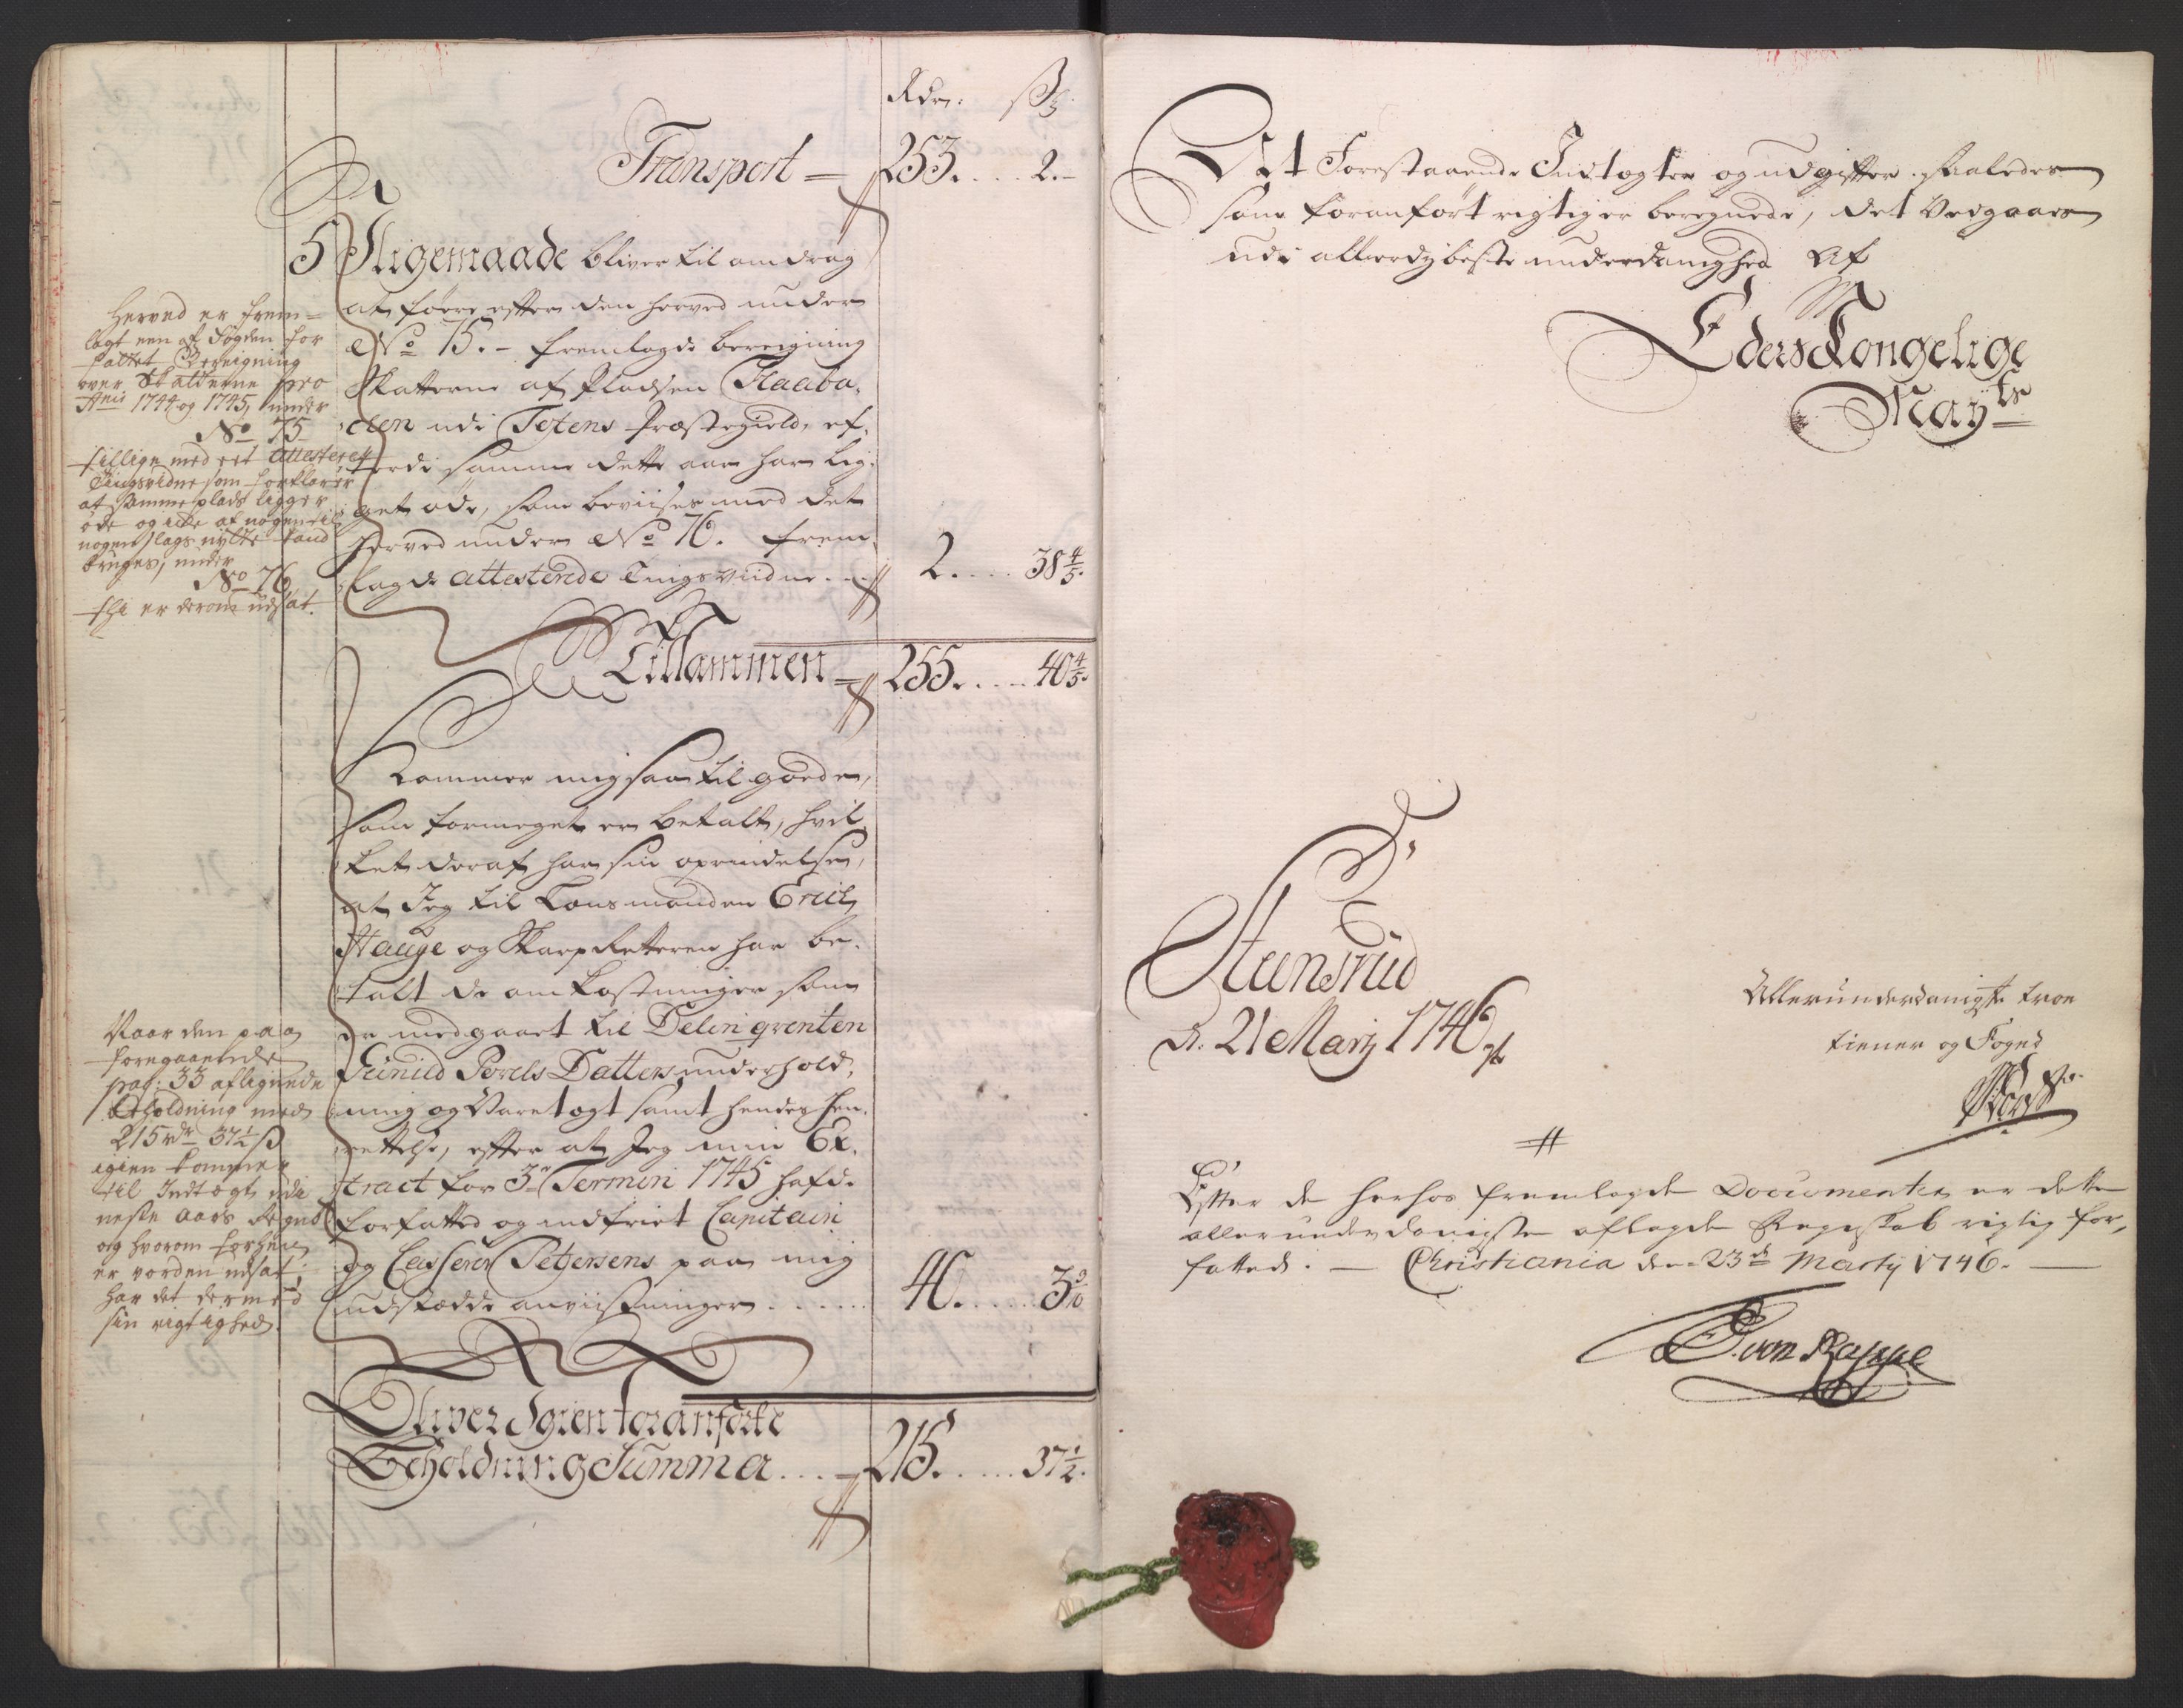 Rdr. ß
Transport = 253. . . . 2. -
5 Sligemaade bliver til andrag
at føere efter den herved under
No 75. - fremlagde bereigning
Skatterne af Pladsen Haaba,
len udi Totens Præstegield, ef,
terdi samme dette aar har lig,
get øde, som beviises med det
herved under No 76. frem,
lagde attesterede Tingsviidne . . . 2. . . . 38 4/5.
Herved er frem=
lagt een af Fogden for
fattet Bereigning
over Skatterne pro
Anis 1744 og 1745, under
No 75
tillige med eet attesteret
Tingsvidne som forklarer
at samme plads ligger
øde og icke af nogen til
nogen slags nytte
bruges, under
No 76
thi er derom udsat.
Tillammen = 255. . . . . 40 4/5.
Kommer mig saa til goede,
som formeget er betalt, hvil,
ket deraf har sin oprindelse,
at Jeg til Lensmanden Erich
Hauge og Skarp Retteren har be,
talt de omkostninger som
er medgaaet til Delinqventen
Gunild Povels Datters underhold,
ning og Varetegt samt hendes hen,
rettelse, efter at Jeg min Ex,
tract for 3die Termin 1745 hafde
forfatted og indfriet Capitain
og Casserer Petersens paa mig
udstædde anviisninger . . . . . . 40. . . . . 3 3/10
Naar den paa
foregaaende
pag: 33 aflignede
Beholdning med
215 rdr 37 1/2 ß
igien kommer
til Indtægt udi
neste aars Regnsk
og hvorom forhen
er vorden udsat,
har det dermed
sin rigtighed.
Bliver Igien foranførte
Beholdning Summa . . . = 215. . . . . 37 1/2.
At Forestaaende Indtægter og udgifter saaledes
som foranført rigtig er beregnede, det Vedgaaes
udi allerdybeste underdanighed Af
Eders Kongelige
Mayts
Steensrud
d. 21 Marty 1746
Allerunderdanigste troe
tiener og Foged
Efter de herhos fremlagde Documenter er dette
allerunderdanigste aflagde Regnskab rigtig for,
fatted. — Christiania den 23de Marty 1746. —
von Rappe